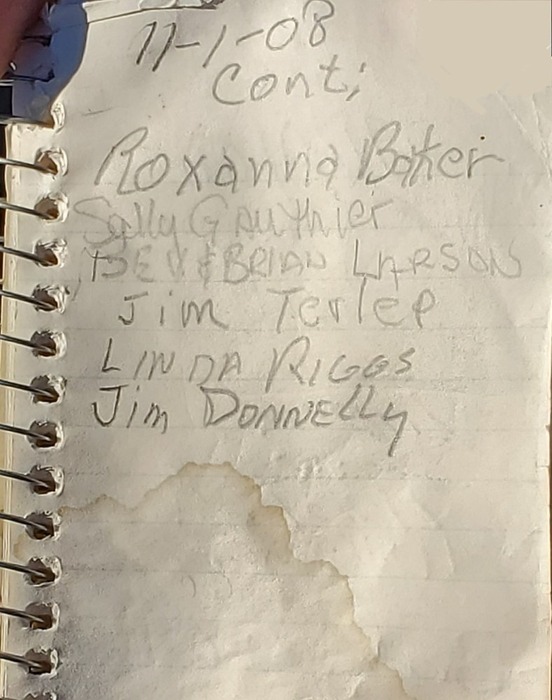 11-1-08
Cont;
Roxanna Baker
Sally Gauthier
BEV & BRIAN LARSON
Jim Terlep
LINDA RIGGS
Jim DONNELLy